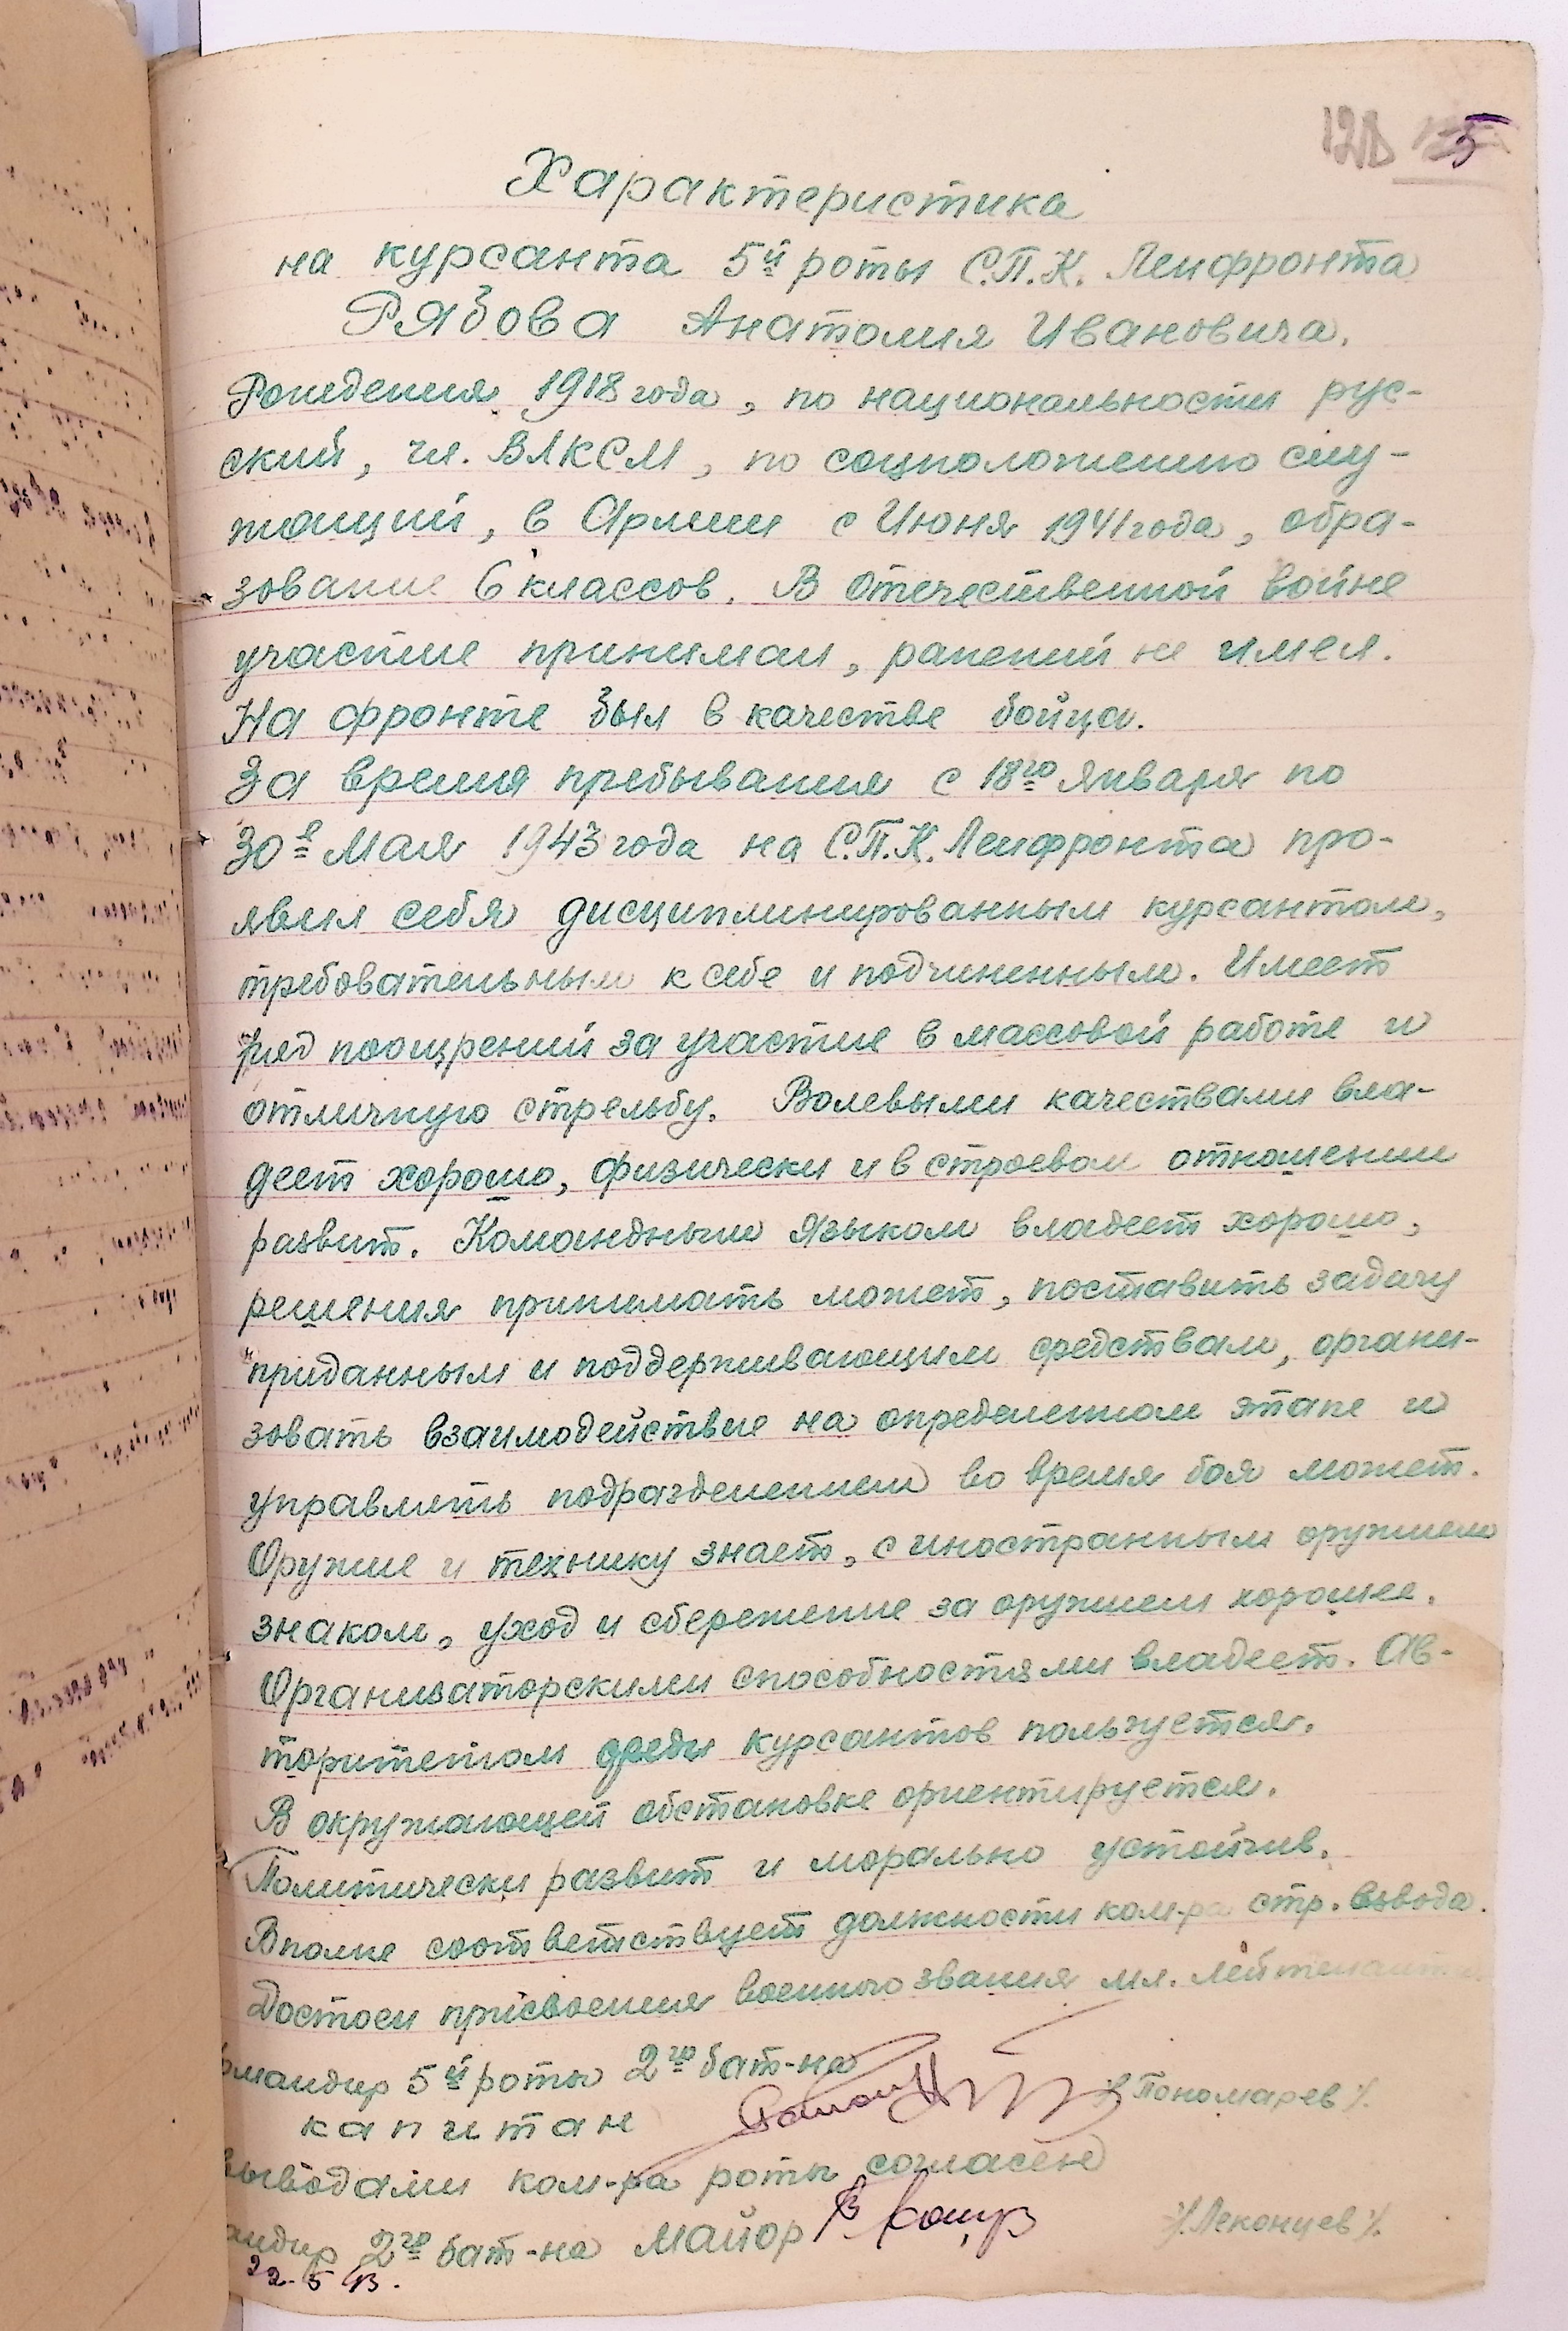 5
Характеристика
на курсанта 5й роты С.П.К. Ленфронта
Рябова Анатолия Ивановича.
Рождения 1918 года, по национальности рус-
ский, чл. ВЛКСМ, по соцположению слу-
жащий, в Армии с Июня 1941 года, обра-
зование 6 классов. В Отечественной войне
участие принимал, ранений не имел.
На фронте был в качестве бойца.
За время пребывания с 18го Января по
30е Мая 1943 года на С.П.К. Ленфронта про-
явил себя дисциплинированным курсантом,
требовательным к себе и подчиненным. Имеет
ряд поощрений за участие в массовой работе и
отличную стрельбу. Волевыми качествами вла-
деет хорошо, физически и в строевом отношении
развит. Командным языком владеет хорошо,
решения принимать может, поставить задачу
приданным и поддерживающим средствам, органи-
зовать взаимодействие на определенном этапе и
управлять подразделением во время боя может.
Оружие и технику знает, с иностранным оружием
знаком, уход и сбережение за оружием хорошее.
Организаторскими способностями владеет. Ав-
торитетом среди курсантов пользуется.
В окружающей обстановке ориентируется.
Политически развит и морально устойчив.
Вполне соответствует должности ком-ра стр. взвода.
Достоен присвоения военного звания мл. лейтенанта
омандир 5й роты 2го бат-на
капитан /Пономарев/.
выводами ком-ра роты согласен
андир 2го бат-на майор /Леконцев/.
22.5 43.